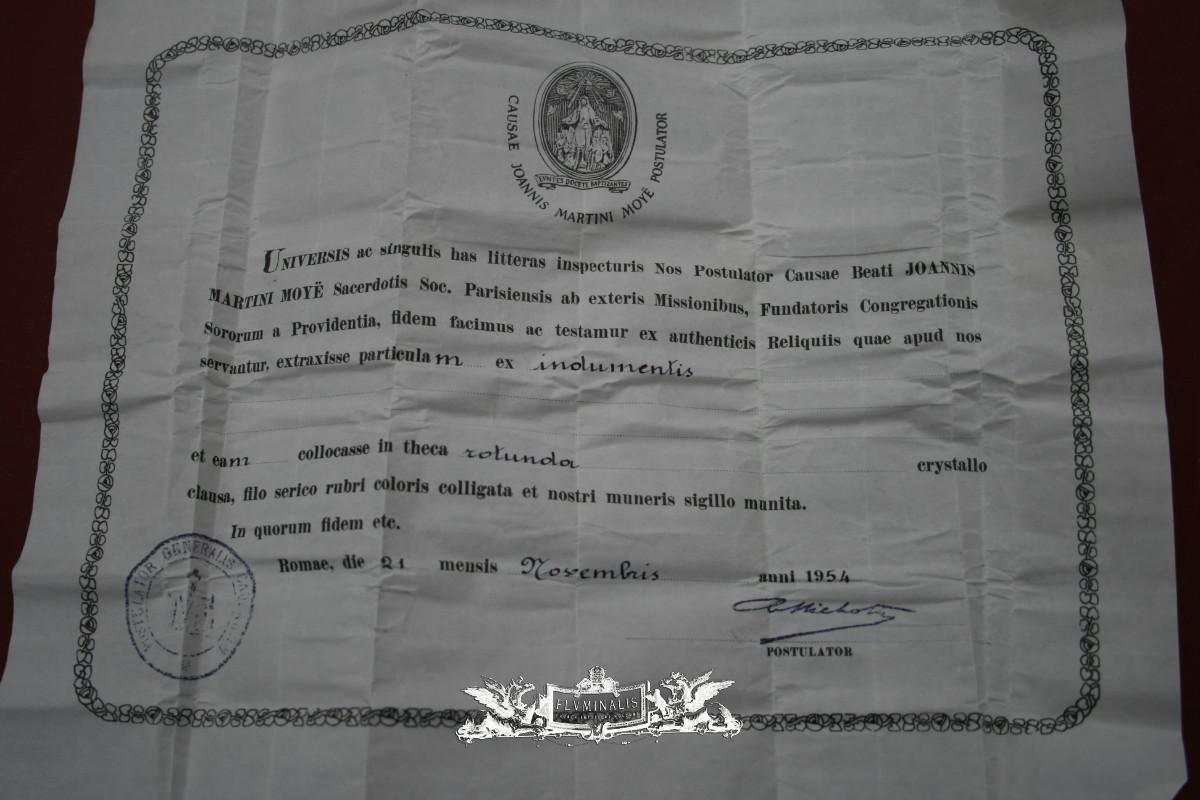 EVNTES DOCETE BAPTIZANTES
CAUSAE JOANNIS MARTINI MOYË POSTULATOR
UNIVERSIS ac singulis has litteras inspecturis Nos Postulator Causae Beati JOANNIS
MARTINI MOYË Sacerdotis Soc. Parisiensis ab exteris Missionibus, Fundatoris Congregationis
Sororum a Providentia, fidem facimus ac testamur ex authenticis Reliquiis quae apud nos
servantur, extraxisse particulam ex indumentis
et eam collocasse in theca rotunda crystallo
clausa, filo serico rubri coloris colligata et nostri muneris sigillo munita.
In quorum fidem etc.
Romae, die 21 mensis Novembris anni 1954
POSTULATOR GENERALIS
POSTULATOR
FLVMINALIS